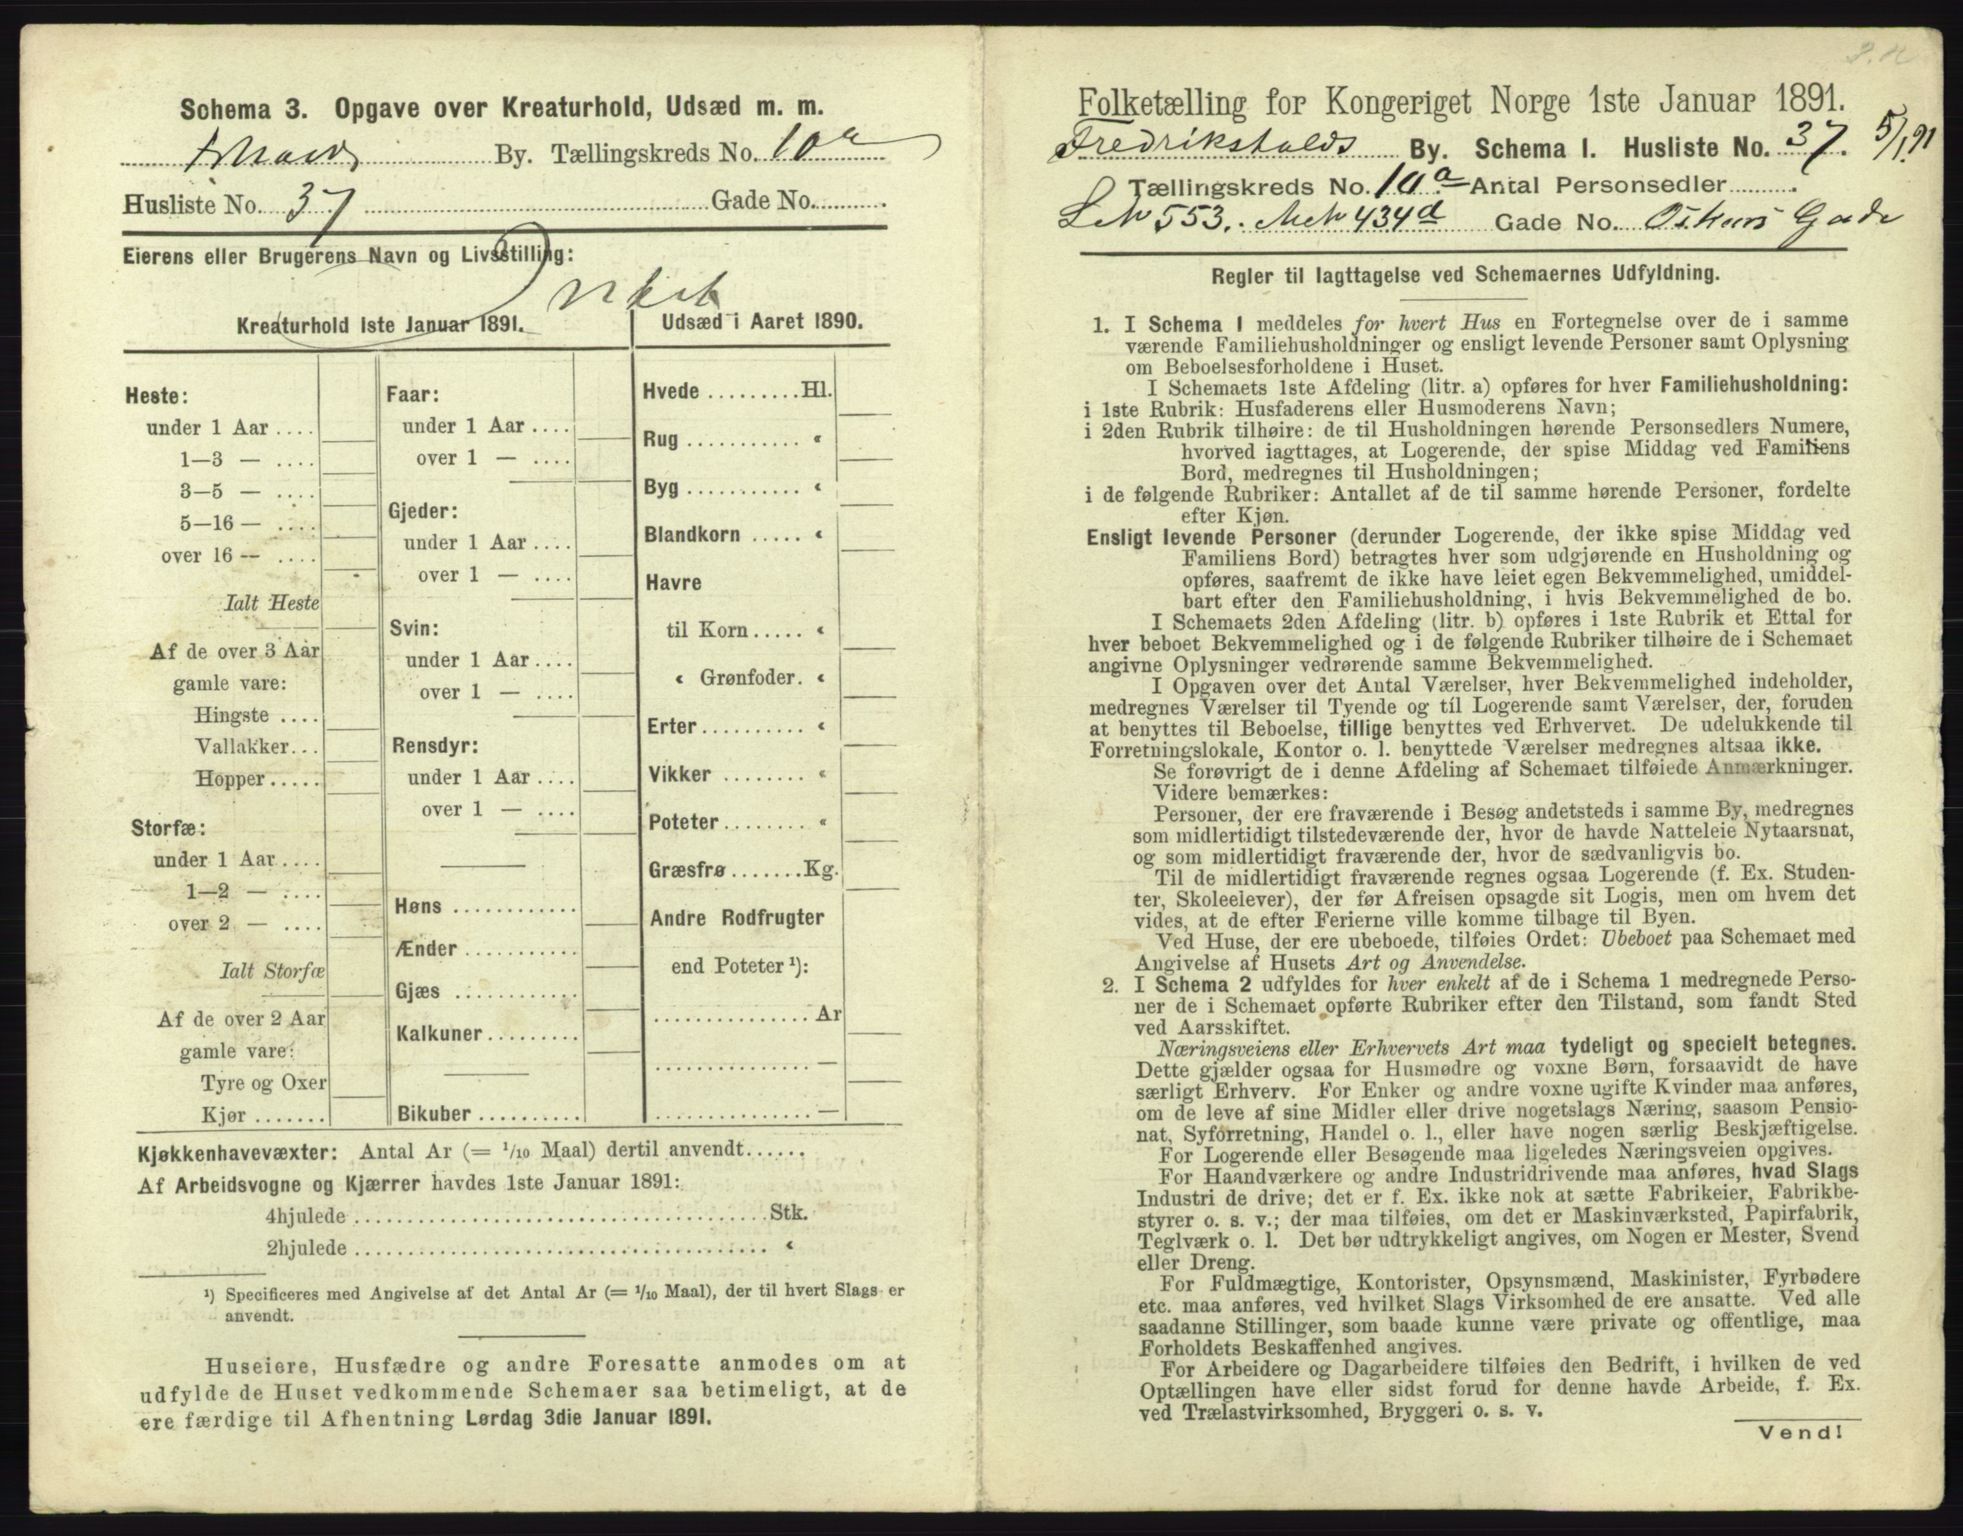 Schema 3. Opgave over Kreaturhold, Udsæd m. m.
By. Tællingskreds No. 10a
Husliste No. 37 Gade No.
Eierens eller Brugerens Navn og Livsstilling:
Intet
Kreaturhold 1ste Januar 1891.
Heste:
under 1 Aar ....
1—3 — ....
3—5 — ....
5—16 — ....
over 16 — ....
Ialt Heste
Af de over 3 Aar
gamle vare:
Hingste ....
Vallakker...
Hopper.....
Storfæ:
under 1 Aar....
1—2 — ....
over 2 — ....
Ialt Storfæ
Af de over 2 Aar
gamle vare:
Tyre og Oxer
Kjør .......
Faar:
under 1 Aar ....
over 1 — ....
Gjeder:
under 1 Aar ....
over 1 — ....
Svin:
under 1 Aar ....
over 1 — ....
Rensdyr:
under 1 Aar ....
over 1 — ....
Høns ............
Ænder ............
Gjæs ............
Kalkuner .........
Bikuber ..........
Udsæd i Aaret 1890.
Hvede .........Hl.
Rug ........... “
Byg ........... “
Blandkorn ..... “
Havre
til Korn ..... “
“ Grønfoder. “
Erter .......... “
Vikker ......... “
Poteter ........ “
Græsfrø .......Kg.
Andre Rodfrugter
end Poteter ¹):
............... Ar
............... —
............... —
Kjøkkenhavevæxter: Antal Ar (= 1/10 Maal) dertil anvendt......
Af Arbeidsvogne og Kjærrer havdes 1ste Januar 1891:
4hjulede ........................................ Stk.
2hjulede ........................................ “
¹) Specificeres med Angivelse af det Antal Ar (= 1/10 Maal), der til hvert Slags er
anvendt.
Huseiere, Husfædre og andre Foresatte anmodes om at
udfylde de Huset vedkommende Schemaer saa betimeligt, at de
ere færdige til Afhentning Lørdag 3die Januar 1891.
Folketælling for Kongeriget Norge 1ste Januar 1891.
Fredrikshalds By. Schema I. Husliste No. 37. 5/1 91
Tællingskreds No. 10a Antal Personsedler
LN 553. MN 434d Gade No. Oskars Gade
Regler til Iagttagelse ved Schemaernes Udfyldning.
1. I Schema I meddeles for hvert Hus en Fortegnelse over de i samme
værende Familiehusholdninger og ensligt levende Personer samt Oplysning
om Beboelsesforholdene i Huset.
I Schemaets 1ste Afdeling (litr. a) opføres for hver Familiehusholdning:
i 1ste Rubrik: Husfaderens eller Husmoderens Navn;
i 2den Rubrik tilhøire: de til Husholdningen hørende Personsedlers Numere,
hvorved iagttages, at Logerende, der spise Middag ved Familiens
Bord, medregnes til Husholdningen;
i de følgende Rubriker: Antallet af de til samme hørende Personer, fordelte
efter Kjøn.
Ensligt levende Personer (derunder Logerende, der ikke spise Middag ved
Familiens Bord) betragtes hver som udgjørende en Husholdning og
opføres, saafremt de ikke have leiet egen Bekvemmelighed, umiddel-
bart efter den Familiehusholdning, i hvis Bekvemmelighed de bo.
I Schemaets 2den Afdeling (litr. b) opføres i 1ste Rubrik et Ettal for
hver beboet Bekvemmelighed og i de følgende Rubriker tilhøire de i Schemaet
angivne Oplysninger vedrørende samme Bekvemmelighed.
I Opgaven over det Antal Værelser, hver Bekvemmelighed indeholder,
medregnes Værelser til Tyende og til Logerende samt Værelser, der, foruden
at benyttes til Beboelse, tillige benyttes ved Erhvervet. De udelukkende til
Forretningslokale, Kontor o. l. benyttede Værelser medregnes altsaa ikke.
Se forøvrigt de i denne Afdeling af Schemaet tilføiede Anmærkninger.
Videre bemærkes:
Personer, der ere fraværende i Besøg andetsteds i samme By, medregnes
som midlertidigt tilstedeværende der, hvor de havde Natteleie Nytaarsnat,
og som midlertidigt fraværende der, hvor de sædvanligvis bo.
Til de midlertidigt fraværende regnes ogsaa Logerende (f. Ex. Studen-
ter, Skoleelever), der før Afreisen opsagde sit Logis, men om hvem det
vides, at de efter Ferierne ville komme tilbage til Byen.
Ved Huse, der ere ubeboede, tilføies Ordet: Ubeboet paa Schemaet med
Angivelse af Husets Art og Anvendelse.
2. I Schema 2 udfyldes for hver enkelt af de i Schema 1 medregnede Perso-
ner de i Schemaet opførte Rubriker efter den Tilstand, som fandt Sted
ved Aarsskiftet.
Næringsveiens eller Erhvervets Art maa tydeligt og specielt betegnes.
Dette gjælder ogsaa for Husmødre og voxne Børn, forsaavidt de have
særligt Erhverv. For Enker og andre voxne ugifte Kvinder maa anføres,
om de leve af sine Midler eller drive nogetslags Næring, saasom Pensio-
nat, Syforretning, Handel o. l., eller have nogen særlig Beskjæftigelse.
For Logerende eller Besøgende maa ligeledes Næringsveien opgives.
For Haandværkere og andre Industridrivende maa anføres, hvad Slags
Industri de drive; det er f. Ex. ikke nok at sætte Fabrikeier, Fabrikbe-
styrer o. s. v.; der maa tilføies, om det er Maskinværksted, Papirfabrik,
Teglværk o. l. Det bør udtrykkeligt angives, om Nogen er Mester, Svend
eller Dreng.
For Fuldmægtige, Kontorister, Opsynsmænd, Maskinister, Fyrbødere
etc. maa anføres, ved hvilket Slags Virksomhed de ere ansatte. Ved alle
saadanne Stillinger, som baade kunne være private og offentlige, maa
Forholdets Beskaffenhed angives.
For Arbeidere og Dagarbeidere tilføies den Bedrift, i hvilken de ved
Optællingen have eller sidst forud for denne havde Arbeide, f. Ex.
ved Trælastvirksomhed, Bryggeri o. s. v.
Vend!